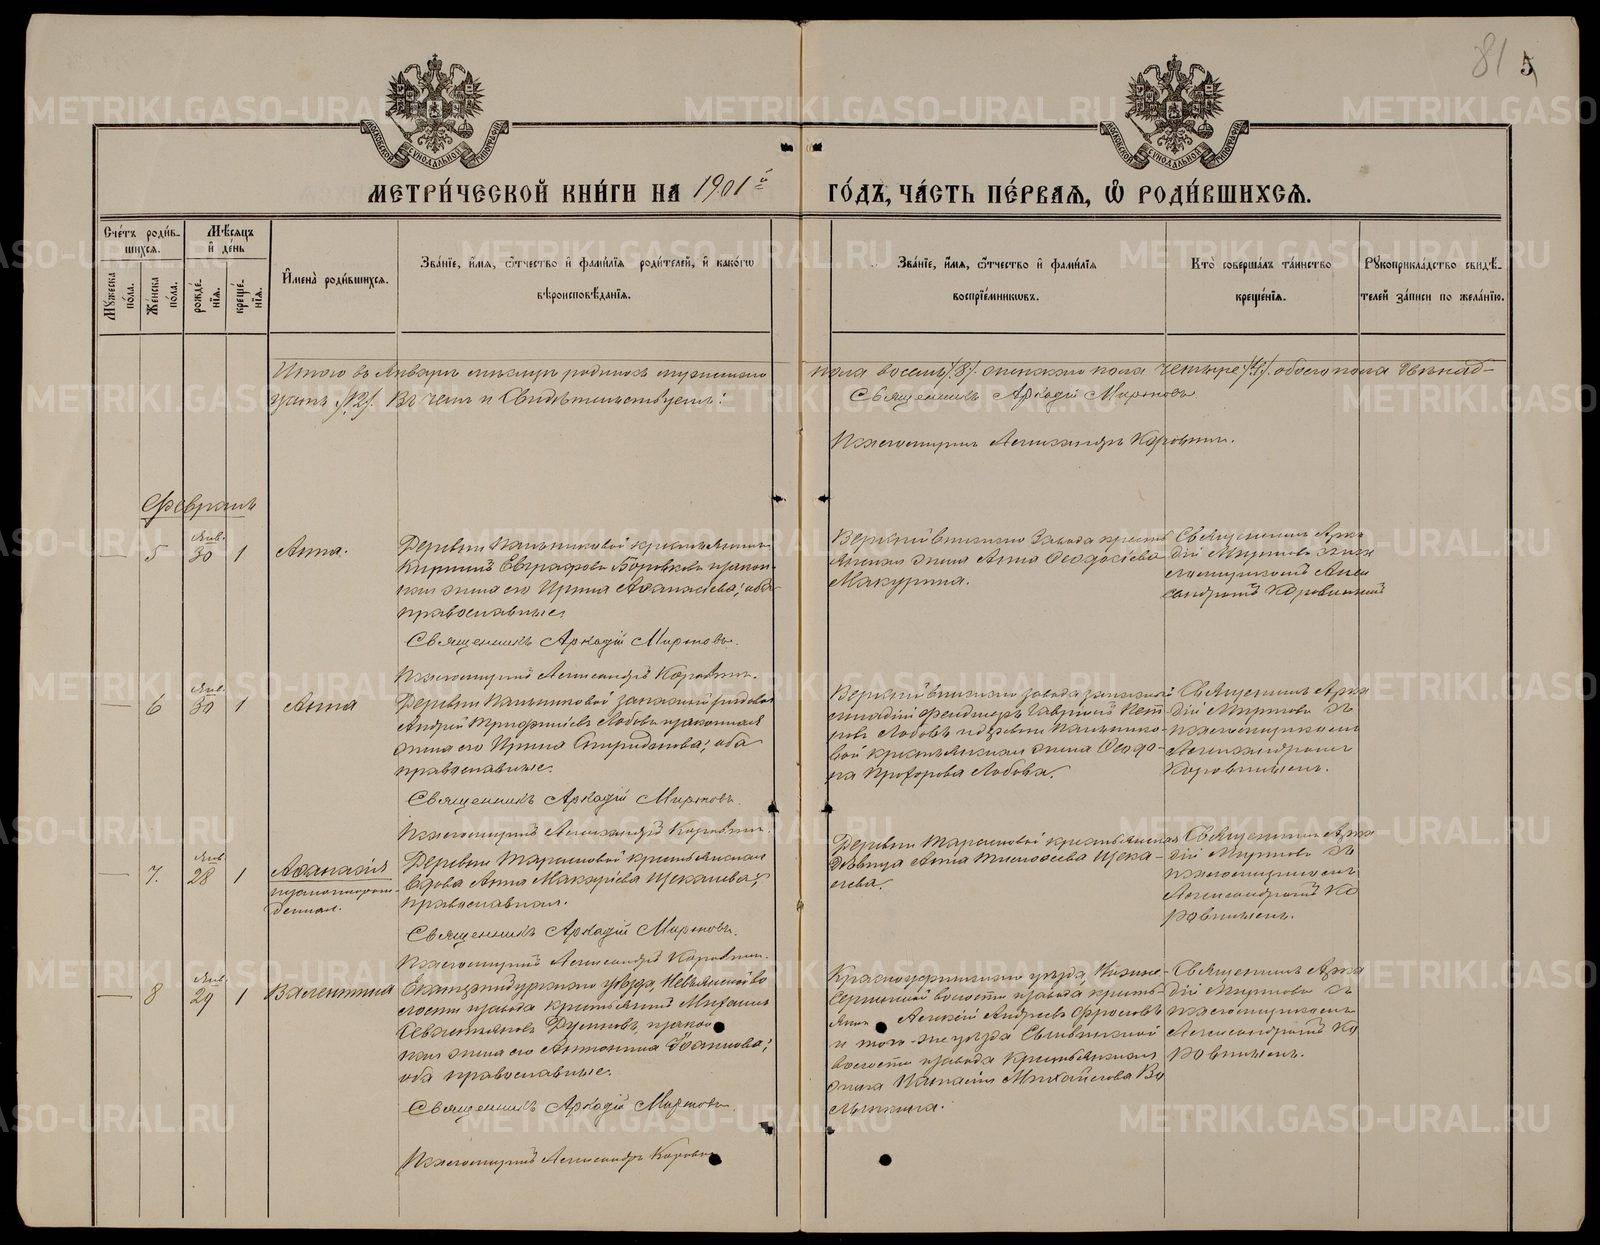 81 5
МЕТРИ́ЧЕСКОЙ КНИ́ГИ НА 1901й ГО́ДЪ, ЧА́СТЬ ПЕ́РВАЯ, Ѡ РОДИ́ВШИХСЯ.
Сче́тъ роди́в-
шихся.
Мѣ́сяцъ
и де́нь
Му́жеска
по́ла.
Же́нска
по́ла.
рожде́-
нїя.
креще́-
нїя.
Имена̀ роди́вшихся.
Зва́нїе, и́мя, ѻ́тчество и фами́лїя роди́телей, и како́гѡ
вѣроисповѣ́данїя.
Зва́нїе, и́мя, ѻ́тчество и фами́лїя
воспрїе́мникѡвъ.
Кто̀ соверша́лъ та́инство
креще́нїя.
Рукоприкла́дство свидѣ́-
телей за́писи по жела́нїю.
Итого въ Январѣ мѣсяцѣ родилось мужескаго пола восемь /8/. женскаго пола четыре /4/. обоего пола двѣнад-
цать /12/. Въ чемъ и Свидѣтельствуемъ:
Священникъ Аркадій Мартовъ
Псаломщикъ Александръ Коровинъ.
Февраль
— 5 Янв. 30 1 Анна.
Деревни
крестьянинъ
Кириллъ Евграфовъ Боровковъ и закон-
ная жена его Ирина Аѳанасіева; оба
православные.
Священникъ Аркадій Мартовъ.
Псаломщикъ Александръ Коровинъ.
завода кресть-
янская жена Анна Ѳеодосіева
Макурина.
Священникъ Арка-
дій Мартовъ съ псал-
омщикомъ Алек-
сандромъ Коровинымъ
— 6 Янв. 30 1 Анна
Деревни
запасный рядовой
Андрей Трифоновъ Лобовъ и законная
жена его Ирина Спиридонова; оба
православные.
Священникъ Аркадій Мартовъ.
Псаломщикъ Александръ Коровинъ.
завода запасный
младшій фельдшеръ Гавріилъ Пет-
ровъ Лобовъ и деревни
крестьянская жена Ѳеодо-
ра Прохорова Лобова.
Священникъ Арка-
дій Мартовъ съ
псаломщикомъ
Александромъ
Коровинымъ.
— 7. Янв. 28 1 Аѳанасія
незаконнорож-
денная.
Деревни Тарасовой крестьянская
вдова Анна Макаріева Щекалева;
православная.
Священникъ Аркадій Мартовъ.
Псаломщикъ Александръ Коровинъ.
Деревни Тарасовой крестьянская
дѣвица Анна Тимоѳеева Щека-
лева.
Священникъ Арка-
дій Мартовъ съ
псаломщикомъ
Александромъ Ко-
ровинымъ.
— 8 Янв. 29 1 Валентина
Екатеринбургскаго уѣзда, Невьянской во-
лости и завода крестьянинъ Михаилъ
Севастьяновъ
и закон-
ная жена его Антонина Іоаннова;
оба православные.
Священникъ Аркадій Мартовъ.
Псаломщикъ Александръ Коровинъ
Красноуфимскаго уѣзда, Нижне-
Сергинской волости и завода, кресть-
янинъ Алексій Андреевъ Фроловъ
и того-же уѣзда
волости и завода крестьянская
жена
Михайлова
Священникъ Арка-
дій Мартовъ съ
псаломщикомъ
Александромъ Ко-
ровинымъ.
METRIKI.GASO-URAL.RU